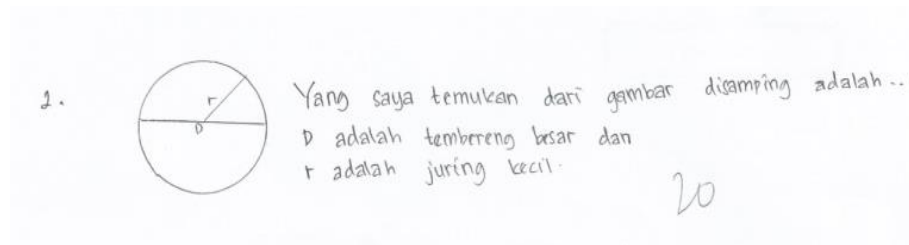 2.
r
D
Yang saya temukan dari gambar disamping adalah..
D adalah tembereng besar dan
r adalah juring kecil.
20